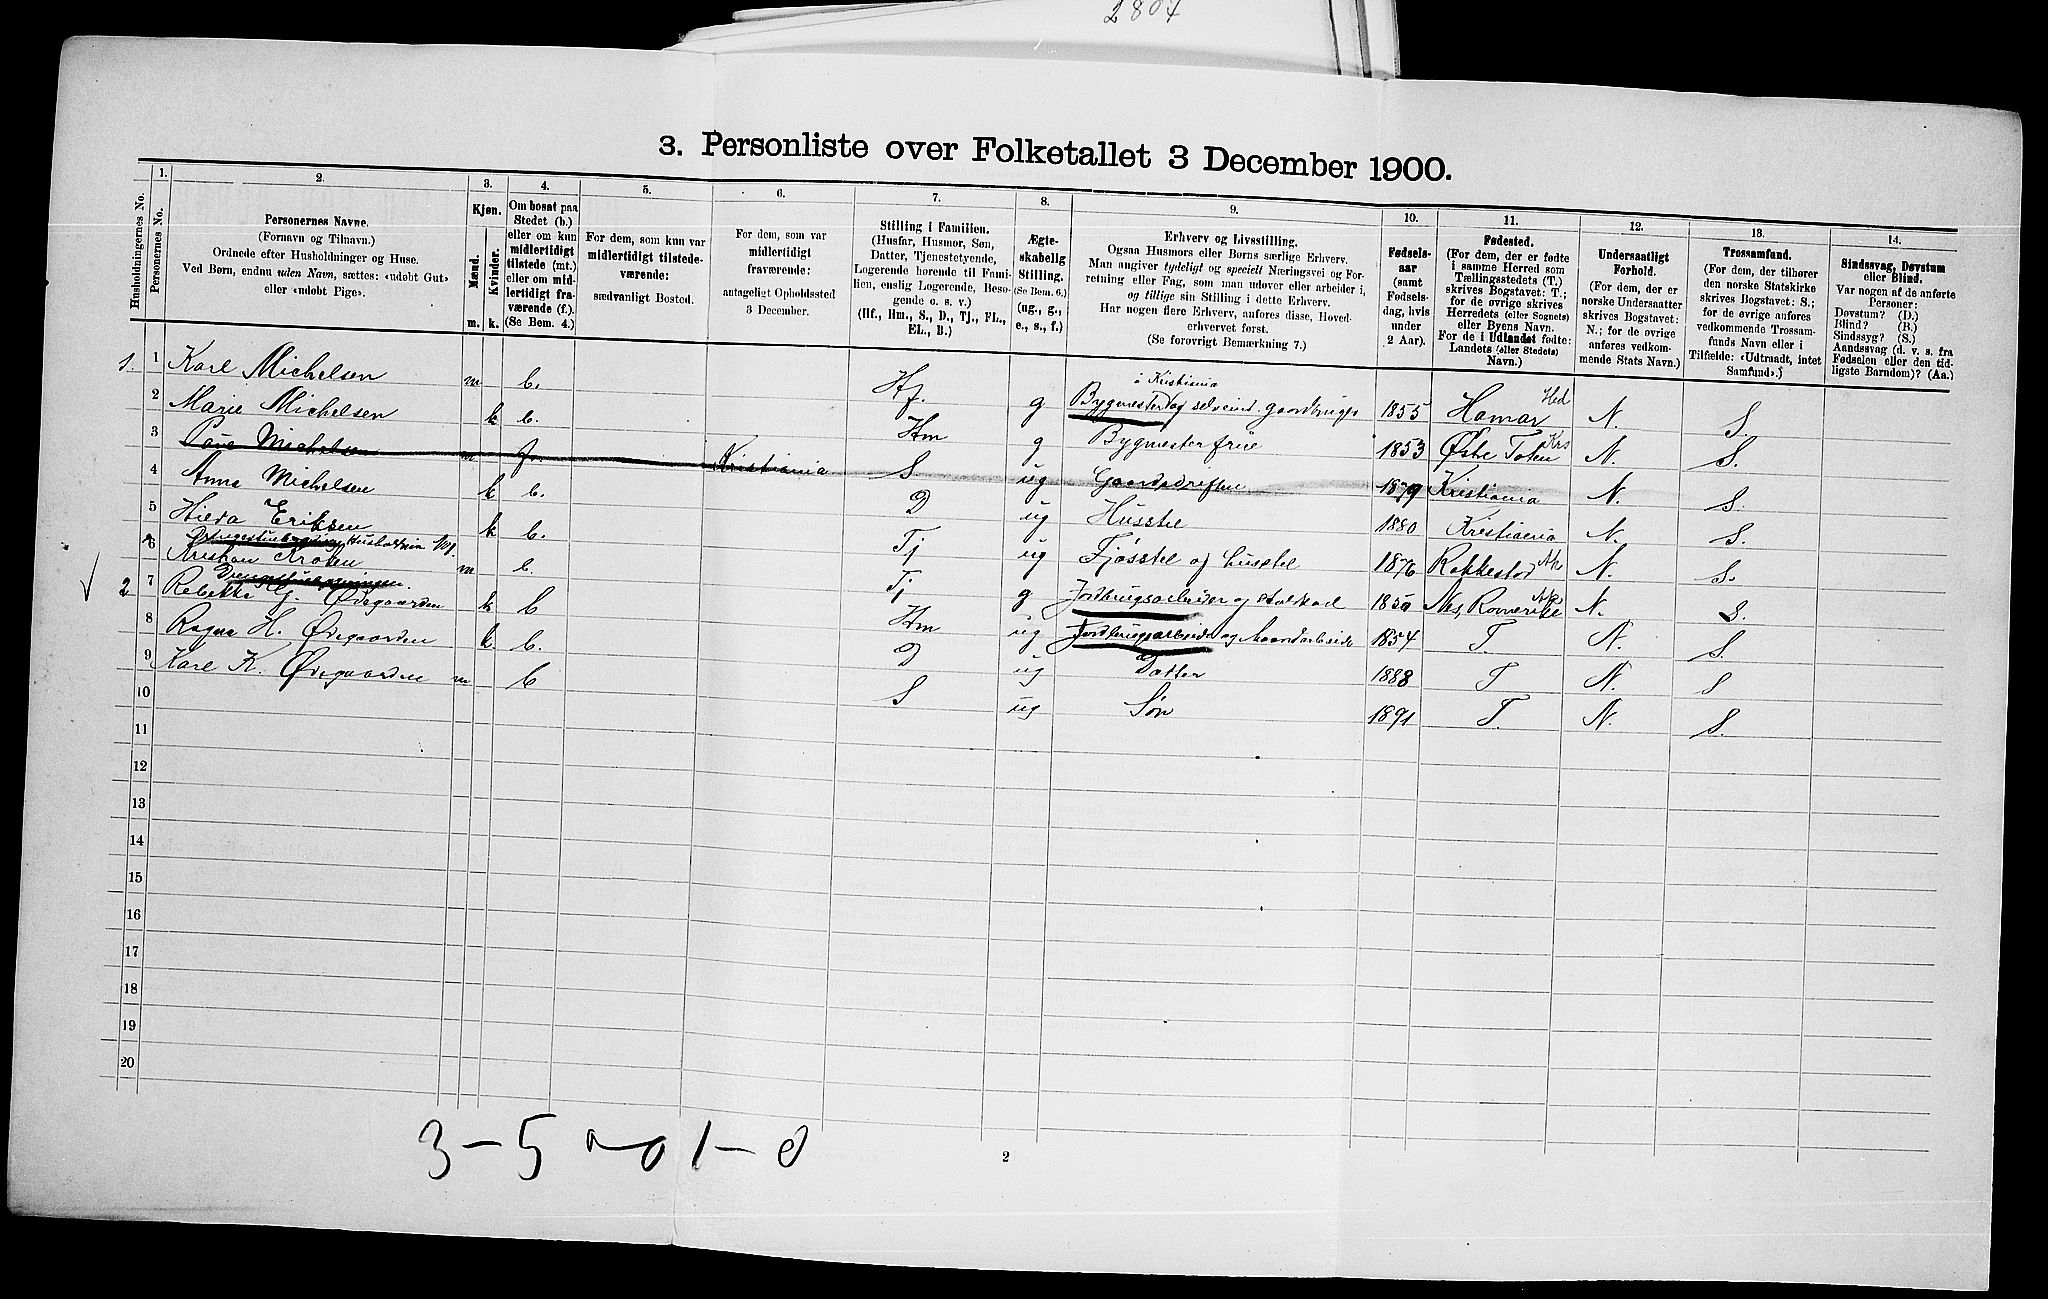 2807
3. Personliste over Folketallet 3 December 1900.
Husholdningernes No.
1.
Personernes No.
2.
Personernes Navne.
(Fornavn og Tilnavn.)
Ordnede efter Husholdninger og Huse.
Ved Børn, endnu uden Navn, sættes: «udøbt Gut»
eller «udøbt Pige».
3.
Kjøn.
Mænd.
Kvinder.
m. k.
4.
Om bosat paa
Stedet (b.)
eller om kun
midlertidigt
tilstede (mt.)
eller om mid-
lertidigt fra-
værende (f.).
(Se Bem. 4.)
5.
For dem, som kun var
midlertidigt tilstede-
værende:
sædvanligt Bosted.
6.
For dem, som var
midlertidigt
fraværende:
antageligt Opholdssted
3 December.
7.
Stilling i Familien.
(Husfar, Husmor, Søn,
Datter, Tjenestetyende,
Logerende hørende til Fami-
lien, enslig Logerende, Besø-
gende o. s. v.)
(Hf., Hm., S., D., Tj., FL.,
EL., B.)
8.
Ægte-
skabelig
Stilling.
(Se Bem. 6.)
(ug., g.,
e., s., f.)
9.
Erhverv og Livsstilling.
Ogsaa Husmors eller Børns særlige Erhverv.
Man angiver tydeligt og specielt Næringsvei og For-
retning eller Fag, som man udøver eller arbeider i,
og tillige sin Stilling i dette Erhverv.
Har nogen flere Erhverv, anføres disse, Hoved-
erhvervet først.
(Se forøvrigt Bemærkning 7.)
10.
Fødsels-
aar
(samt
Fødsels-
dag, hvis
under
2 Aar).
11.
Fødested.
(For dem, der er fødte
i samme Herred som
Tællingsstedets (T.)
skrives Bogstavet: T.;
for de øvrige skrives
Herredets (eller Sognets)
eller Byens Navn.
For de i Udlandet fødte:
Landets (eller Stedets)
Navn.)
12.
Undersaatligt
Forhold.
(For dem, der er
norske Undersaatter
skrives Bogstavet:
N.; for de øvrige
anføres vedkom-
mende Stats Navn.)
13.
Trossamfund.
(For dem, der tilhører
den norske Statskirke
skrives Bogstavet: S.;
for de øvrige anføres
vedkommende Trossam-
funds Navn eller i
Tilfælde: «Udtraadt, intet
Samfund».)
14.
Sindssvag, Døvstum
eller Blind.
Var nogen af de anførte
Personer:
Døvstum? (D.)
Blind? (B.)
Sindssyg? (S.)
Aandssvag (d. v. s. fra
Fødselen eller den tid-
ligste Barndom)? (Aa.)
1. 1 Karl Michelsen m b. Hf. g i Kristiania Bygmester og selveiend. gaardbruger 1855 Hamar Hed N. S.
2 Marie Michelsen k b. Hm g Bygmesterfrue 1853 Østre Toten Krs N. S.
3 Michelsen m f. Kristiania S ug 1879 Kristiania N. S.
4 Anna Michelsen k b. D ug Husstel 1880 Kristiania N. S.
5 Hilda Eriksen k b. Tj ug Fjøsstel og husstel 1876 Rakkestad Ak N. S.
6 Kristian m b. Tj g Jordbrugsarbeider og 1850 Nes, Romerike Ak N. S.
√ 2 7 Rebekka G. Ødegaarden k b Hm ug Jordbrugsarbeide og Haandarbeide 1854 T. N. S.
8 Ragna H. Ødegaarden k b. D ug Datter 1888 T N. S
9 Karl K. Ødegaarden m b S ug Søn 1891 T. N. S.
10
11
12
13
14
15
16
17
18
19
20
2